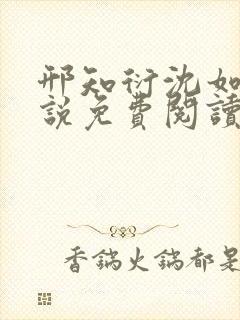 邢知衍沈如
說免費閱讀
香鍋火鍋都是